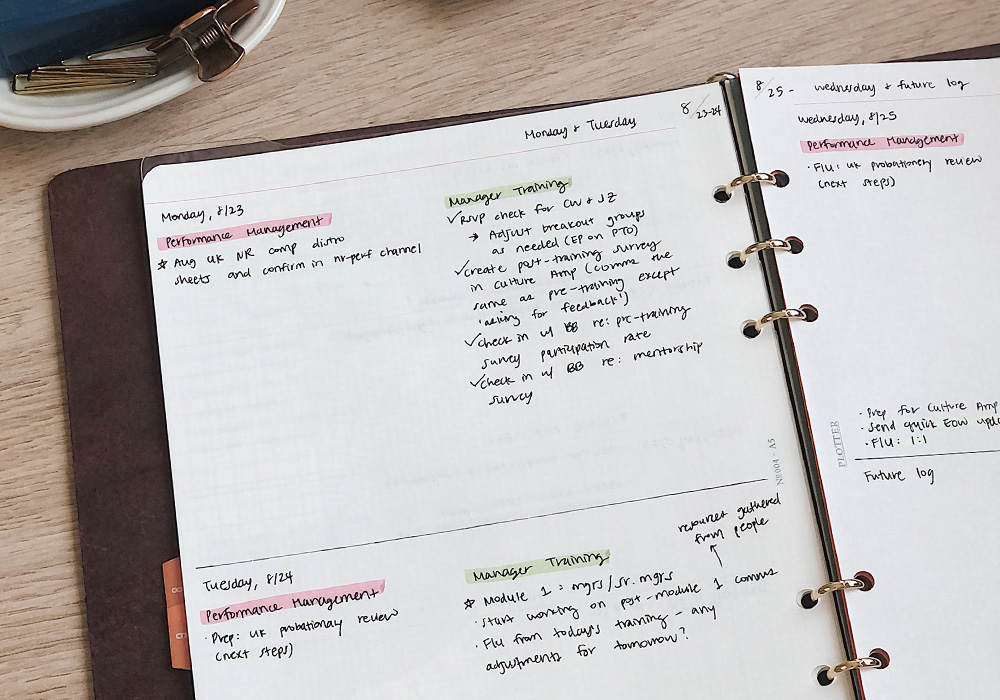 Monday & Tuesday
8/23-24
Monday, 8/23
Performance Management
☆ Aug UK NR comp distro
sheets and confirm in nr-perf channel
Manager Training
✓ RSVP check for CW & JZ
→ Adjust breakout groups
as needed (EP on PTO)
✓ create post-training survey
in culture Amp (comms the
same as pre-training except
'asking for feedback')
✓ check in w/ BB re: pre-training
survey participation rate
✓ check in w/ BB re: mentorship
survey
N8904 - A5
Tuesday, 8/24
Performance Management
· Prep: UK probationary review
(next steps)
resources gathered
from people
Manager Training
☆ Module 1 = mgrs/sr. mgrs
· start working on post-module 1 comms
· F/u from today's training - any
adjustments for tomorrow?
8
6
8/25 - wednesday & future log
wednesday, 8/25
Performance Management
· F/u: UK probationary review
(next steps)
· Prep for Culture Amp
· Send quick EOW
· F/u: 1:1
PLOTTER
Future log